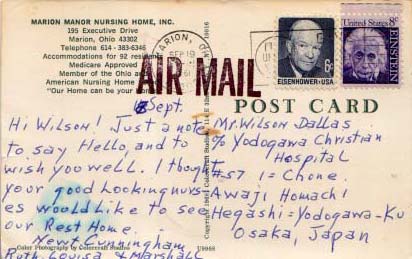 MARION MANOR NURSING HOME, INC.
195 Executive Drive
Marion, Ohio 43302
Telephone 614 - 383-6346
Accommodations for 92 residents
Medicare Approved
Member of the Ohio and
American Nursing Home
"Our Home can be your home"
MARION, OH
SEP 19
AIR MAIL
EISENHOWER·USA
8c
United States 8c
EINSTEIN
POST CARD
Sept.
Hi Wilson! Just a note
to say Hello, and to
wish you well. I thought
your good looking nurs-
es would like to see
our Rest Home.
Newt Cunningham
Ruth, Louisa & Marshall
Mr. Wilson Dallas
% Yodogawa Christian
Hospital
#57 1 = Chone.
Awaji Homachi
Hegashi = Yodogawa-Ku
Osaka, Japan
Color Photography by Colorcraft Studios
U9968